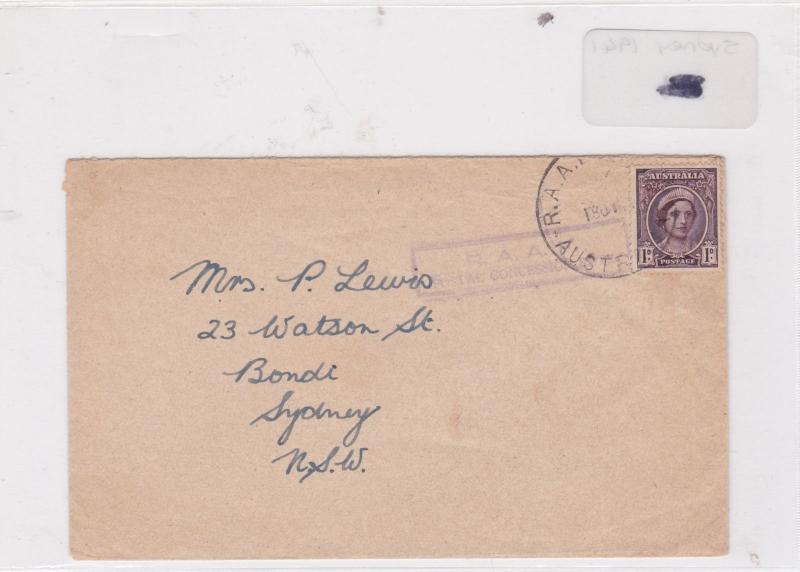 Sydney 1941
R.A.A.
AUSTR
AUSTRALIA
1D POSTAGE 1D
R. A. A.
POSTAL CONCESSION
Mrs. P. Lewis
23 Watson St.
Bondi
Sydney
N.S.W.